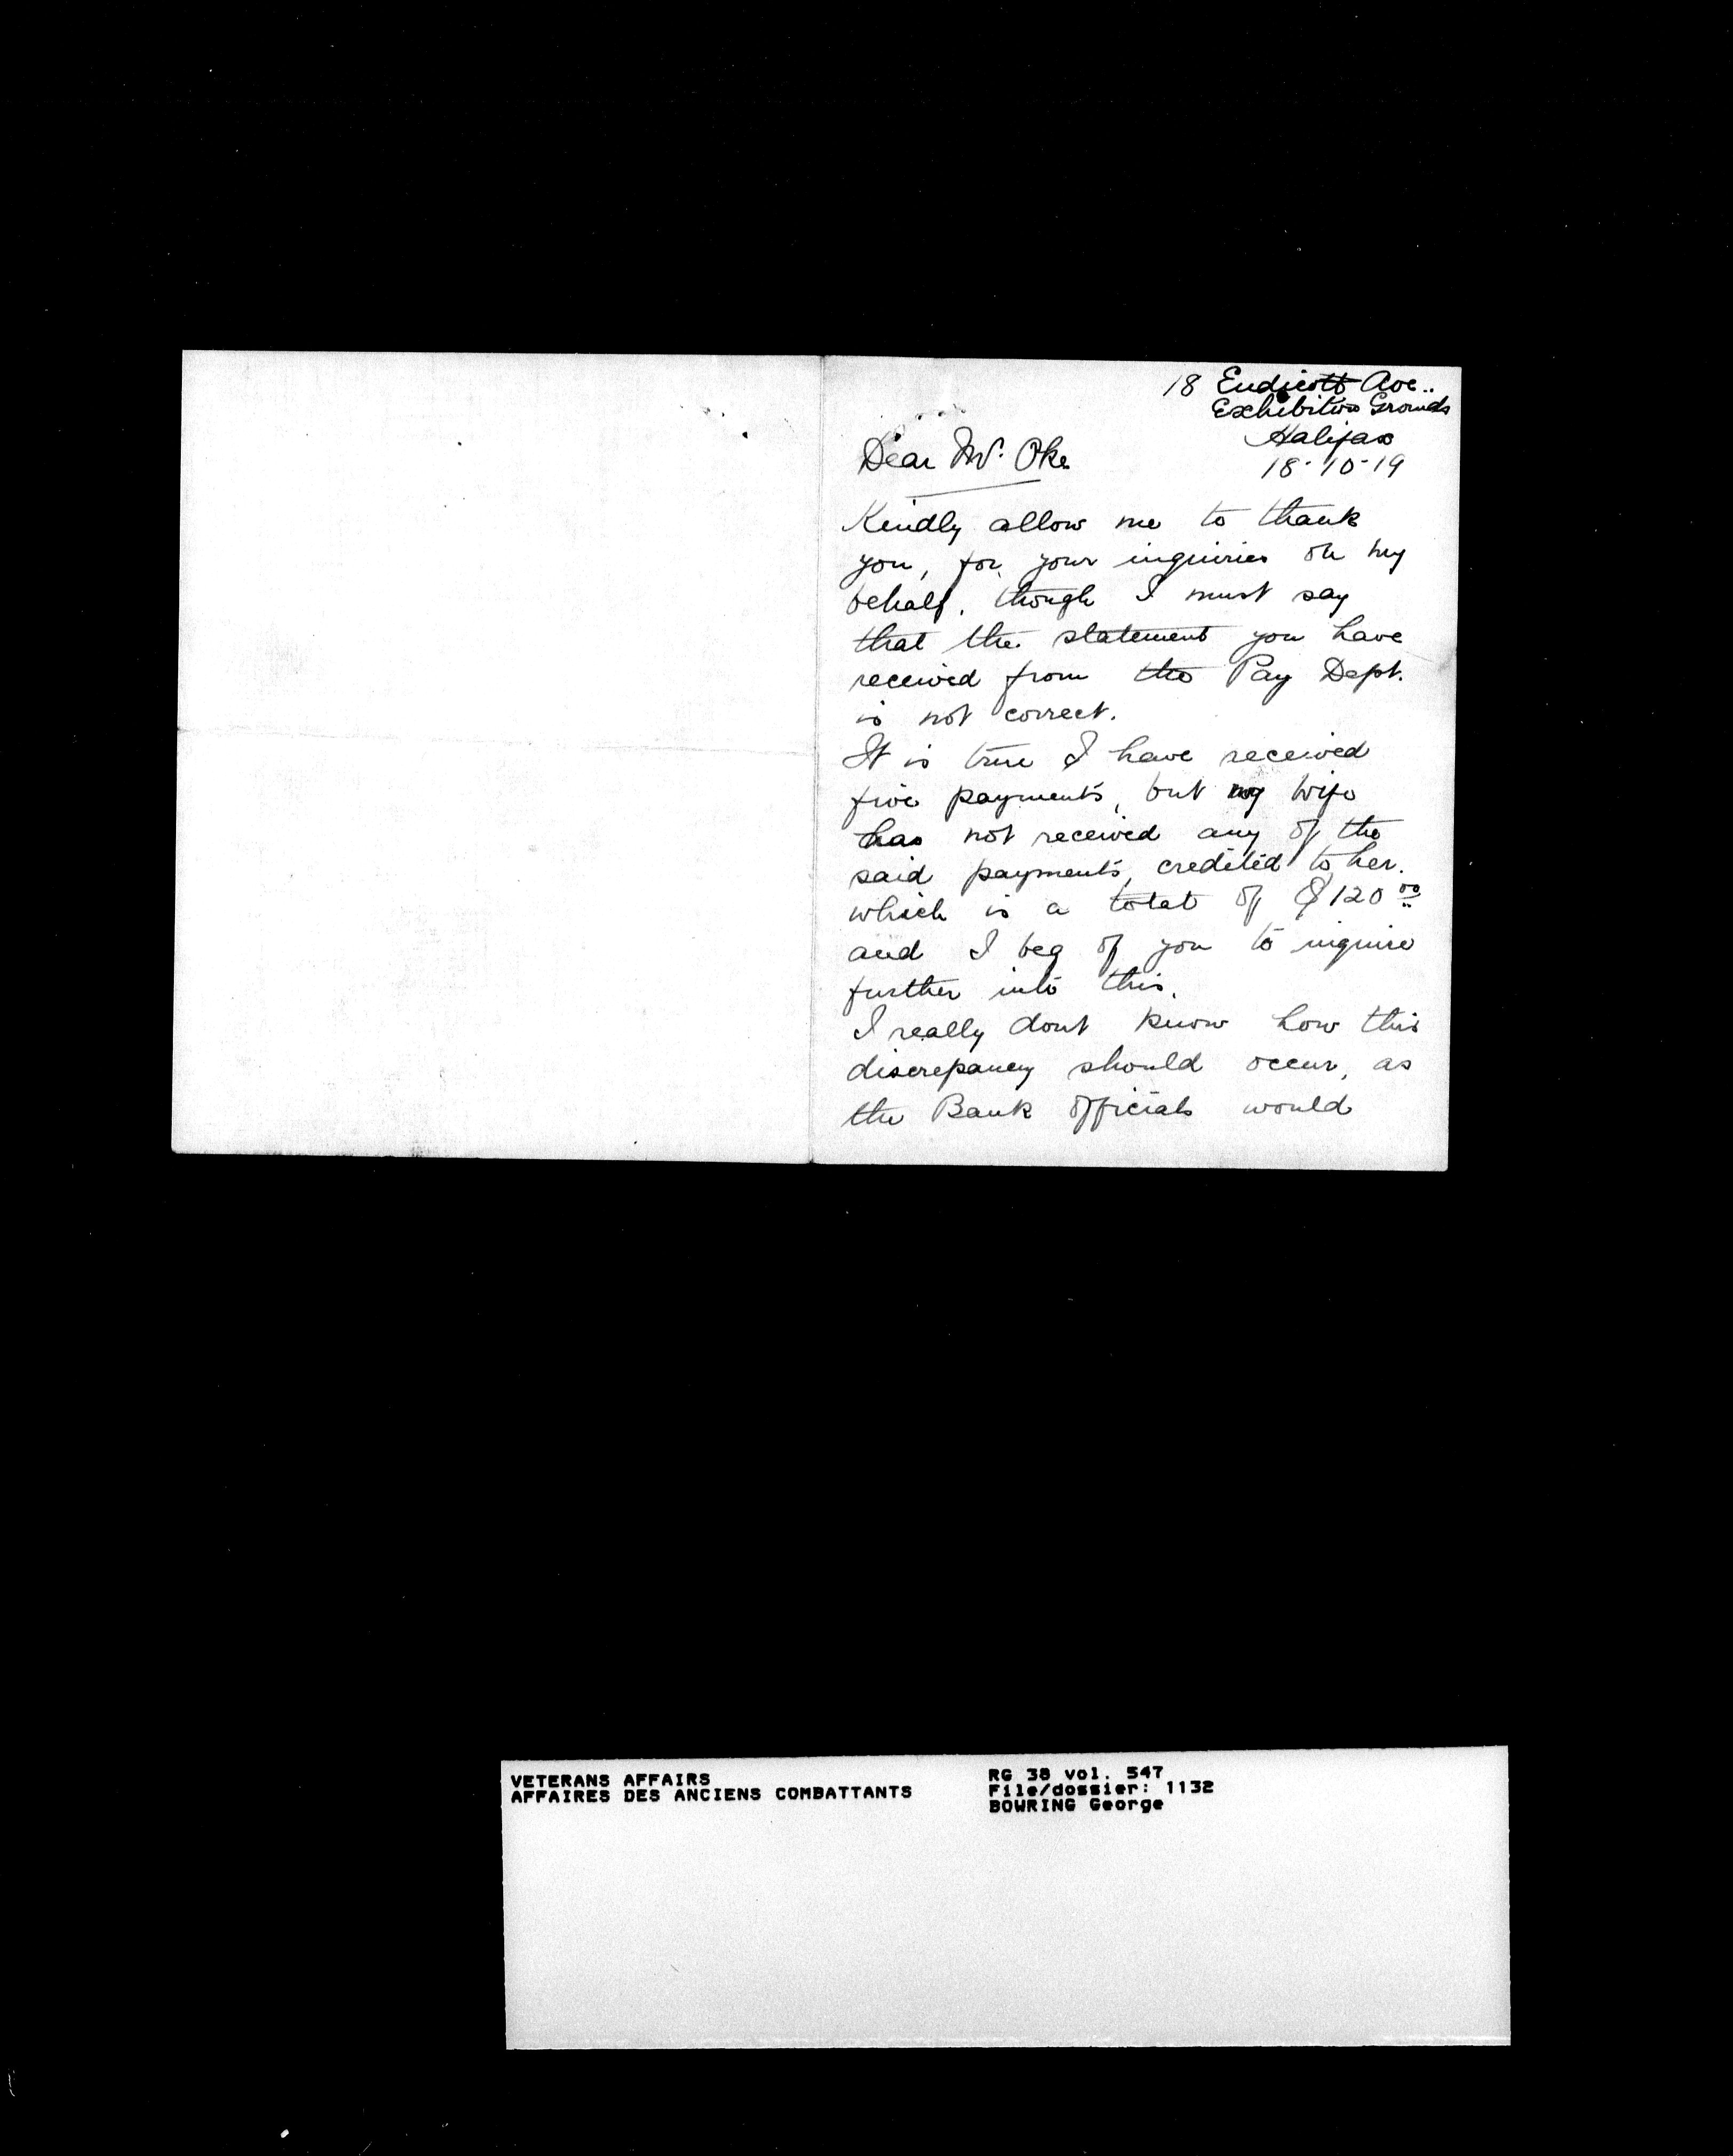 18 Endicott Ave..
Exhibition Grounds
Halifax
18-10-19
Dear Mr. Oke
Kindly allow me to thank
you, for your inquiries on my
behalf, though I must say
that the statement you have
received from the Pay Dept.
is not correct.
It is true I have received
five payments, but my wife
has not received any of the
said payments, credited to her.
which is a total of $120 00
and I beg of you to inquire
further into this.
I really dont know how this
discrepancy should occur, as
the Bank officials would
VETERANS AFFAIRS
AFFAIRES DES ANCIENS COMBATTANTS
RG 38 vol. 547
File/dossier: 1132
BOWRING George